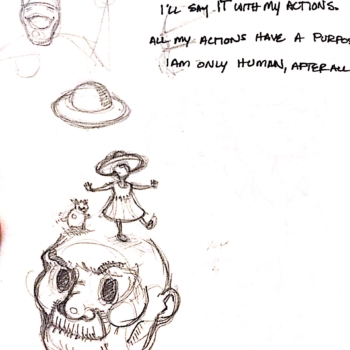 I'LL SAY IT WITH MY ACTIONS.
ALL MY ACTIONS HAVE A
I AM ONLY HUMAN, AFTER ALL